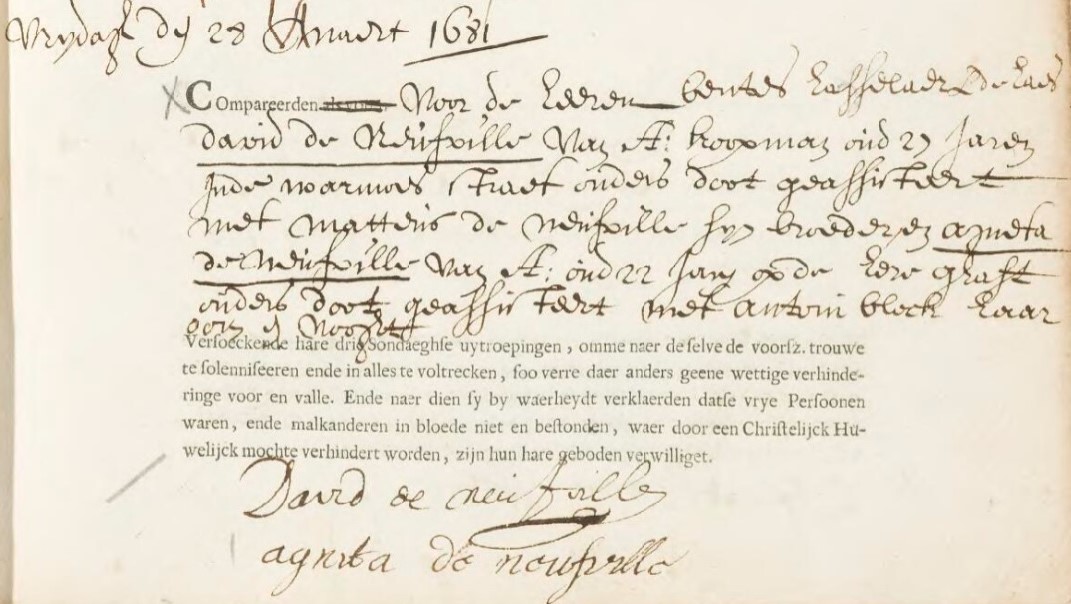 Vrydagh dy 28 Maert 1681
Compareerden als vooren Voor de Heeren bentes Hasselaer & de Haes
david de Neufville Van A: koopman oud 27 Jaren
Inde warmoes straet ouders doot geassisteert
met matteus de neufville syn broeder en agneta
de Neufville Van A: oud 22 Jaer opde Here graft
ouders doot geassisteert met antoni block haar
oom & Voogt
Versoeckende hare drie Sondaeghse uytroepingen, omme naer de selve de voorsz. trouwe
te solenniseeren ende in alles te voltrecken, soo verre daer anders geene wettige verhinde-
ringe voor en valle. Ende naer dien sy by waerheydt verklaerden datse vrye Persoonen
waren, ende malkanderen in bloede niet en bestonden, waer door een Christelijck Hu-
welijck mochte verhindert worden, zijn hun hare geboden verwilliget.
David de neufville
agneta de neufville